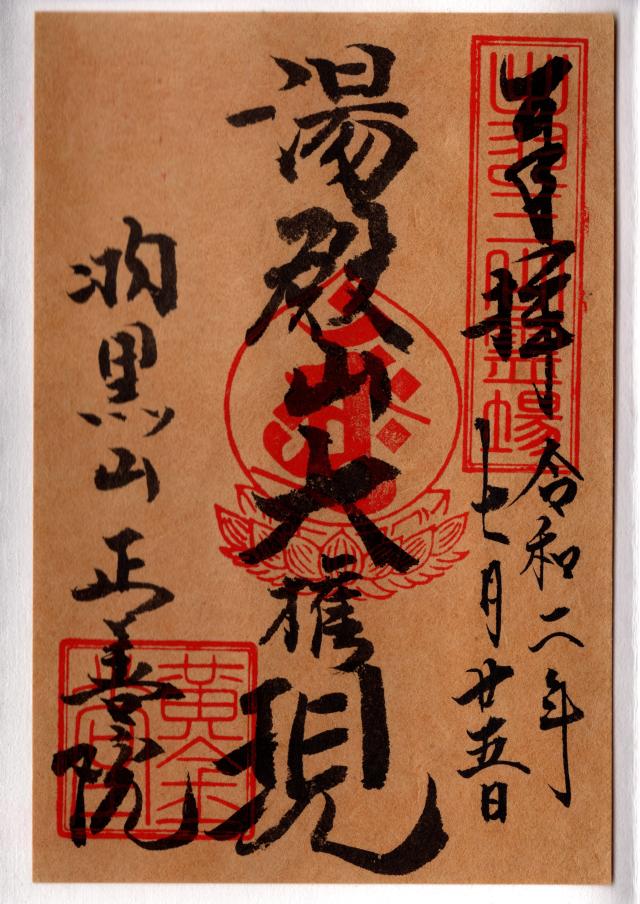 拝
令和二年
七月廿五日
湯殿山大権現
羽黒山正善院
出羽三山霊場
黄金